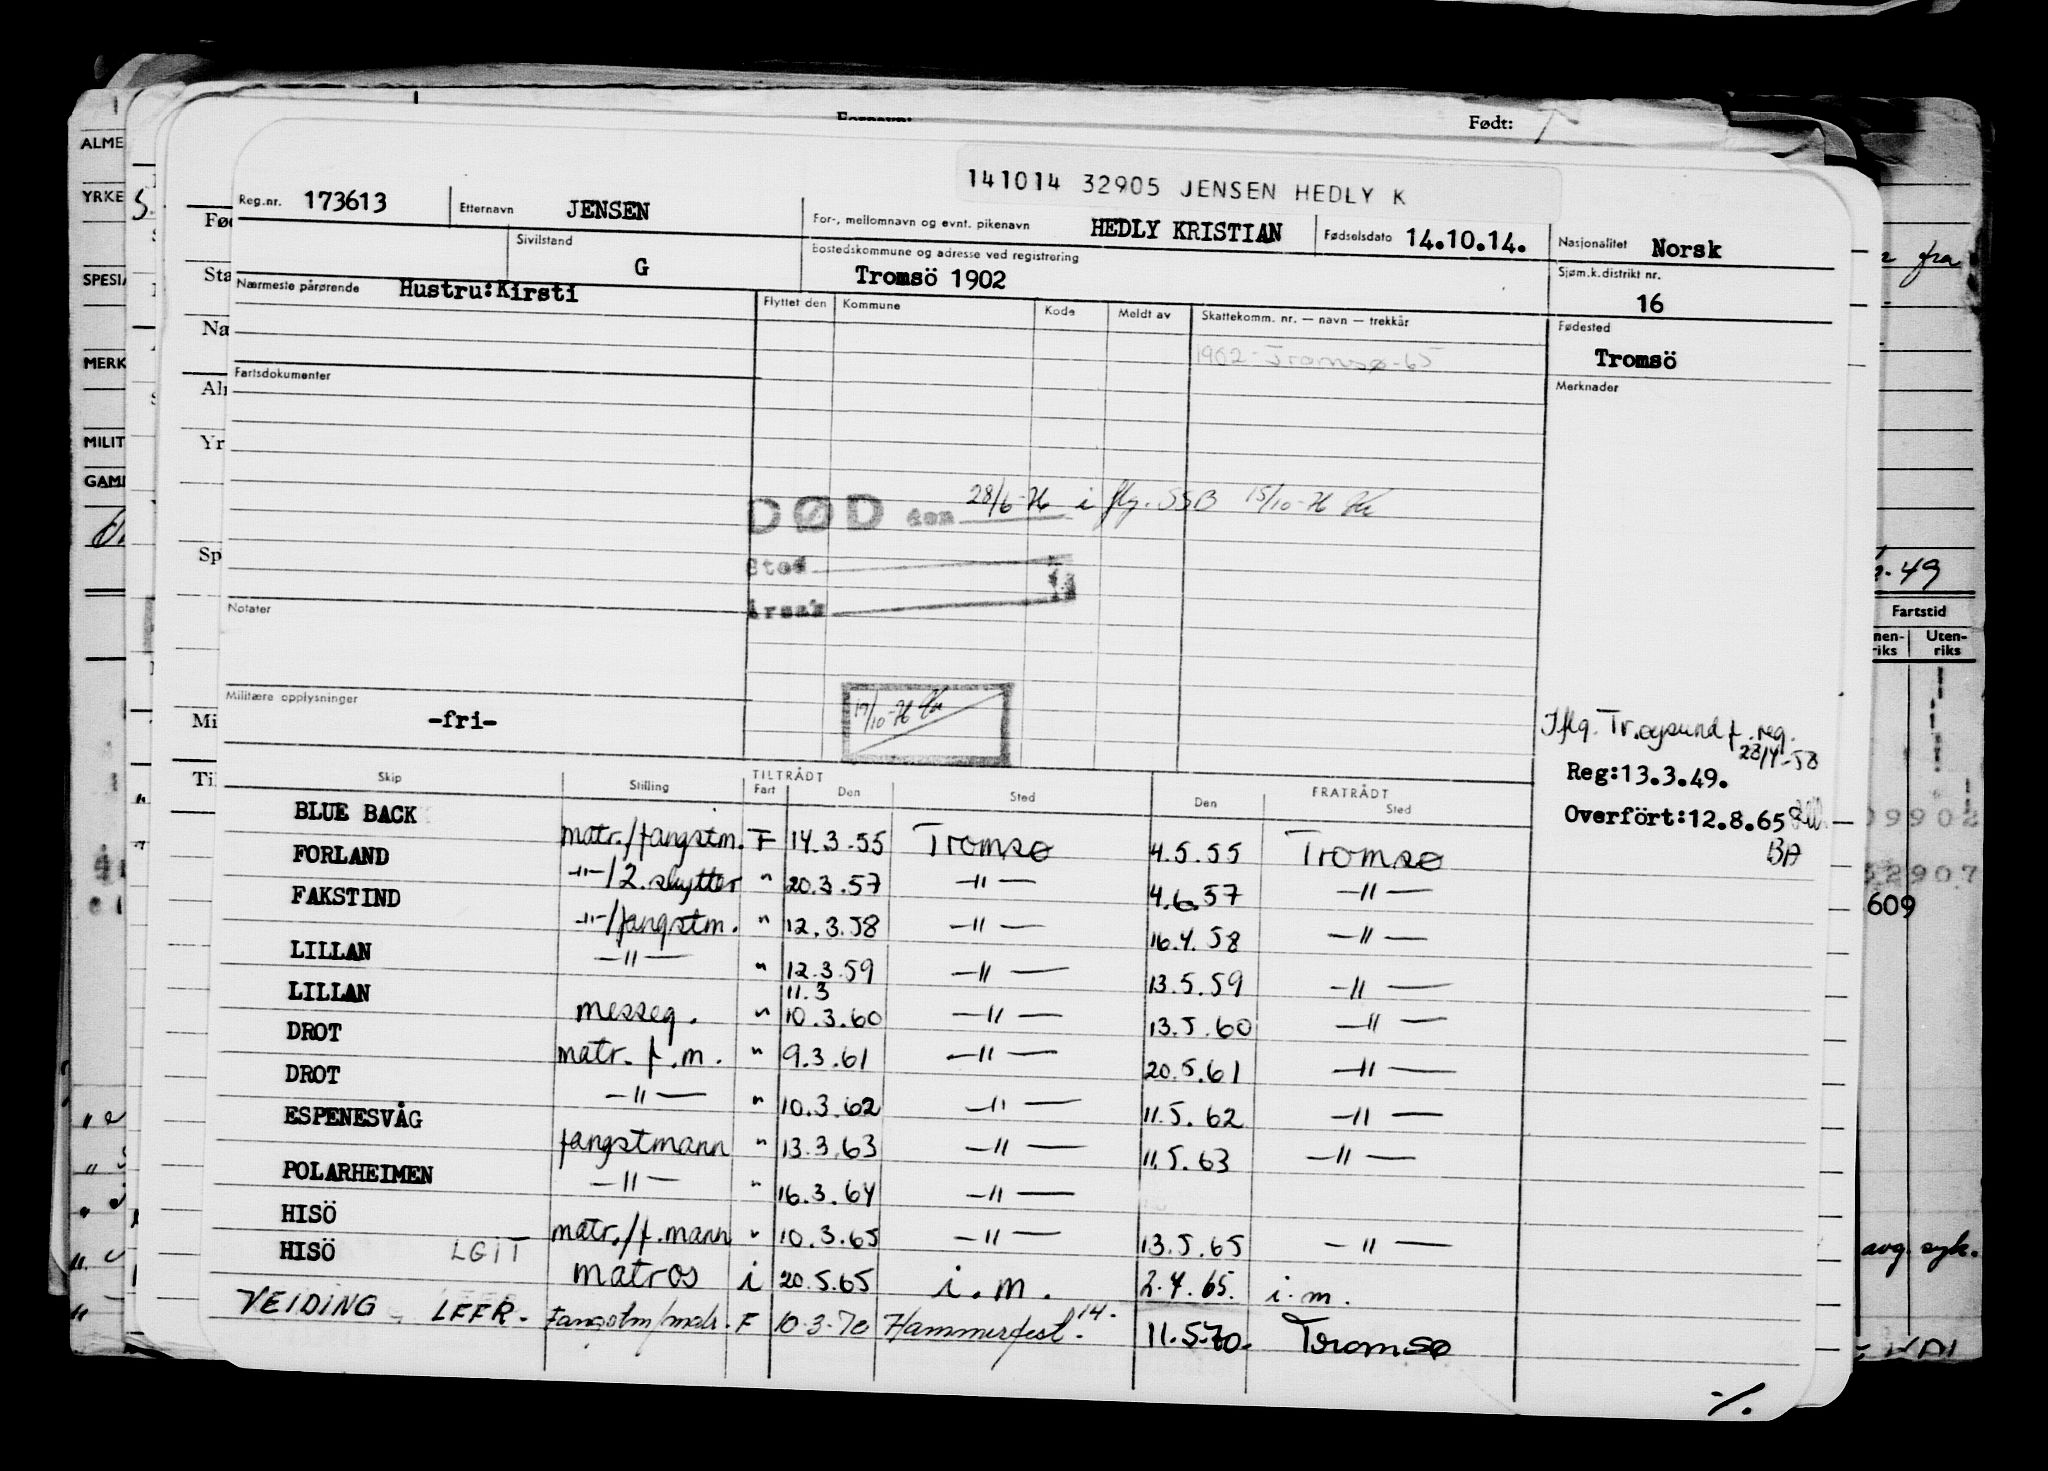 Født:
141014 32905 JENSEN HEDLY K
Reg.nr. 173613 Etternavn JENSEN For-, mellomnavn og evnt. pikenavn HEDLY KRISTIAN Fødselsdato 14.10.14. Nasjonalitet Norsk
Sivilstand G Bostedskommune og adresse ved registrering Tromsö 1902 Sjøm.k.distrikt nr. 16
Nærmeste pårørende Hustru:Kirsti Flyttet den Kommune Kode Meldt av Skattekomm. nr. — navn — trekkår Fødested
1902-Tromsø-65 Tromsö
Fartsdokumenter Merknader
DØD den 28/6-76 i flg. SSB 15/10-76
Sted
Årsak
Notater
19/10-76
Militære opplysninger -fri-
Iflg. Tr.øysund f. reg.
23/4-58
Reg:13.3.49.
Overfört:12.8.65
BA
Skip Stilling TILTRÅDT Fart Den Sted FRATRÅDT Den Sted
BLUE BACK matr./fangstm. F 14.3.55 Tromsø 4.5.55 Tromsø
FORLAND -"-/2.skytter " 20.3.57 -"- 4.6.57 -"-
FAKSTIND -"-/fangstm. " 12.3.58 -"- 16.4.58 -"-
LILLAN -"- " 12.3.59 -"- 13.5.59 -"-
11.3
LILLAN messeg. " 10.3.60 -"- 13.5.60 -"-
DROT matr. f.m. " 9.3.61 -"- 20.5.61 -"-
DROT -"- " 10.3.62 -"- 11.5.62 -"-
ESPENESVÅG fangstmann " 13.3.63 -"- 11.5.63 -"-
POLARHEIMEN -"- " 16.3.64 -"-
HISÖ matr./f.mann " 10.3.65 -"- 13.5.65 -"-
HISÖ LGIT matros i 20.5.65 i.m. 2.7.65. i.m.
VEIDING LEFR. fangstm/matr. F 10-3-70 Hammerfest 14. 11.5.70. Tromsø
-/.
ALME
YRKE
SPESIA
MERK
MILIT
GAMM
Fød
Sta
Næ
Alm
Yr
Sp
Mi
Til
fra
49
Fartstid
nen-
riks
Uten-
riks
09902
52907
609
avg. syk.